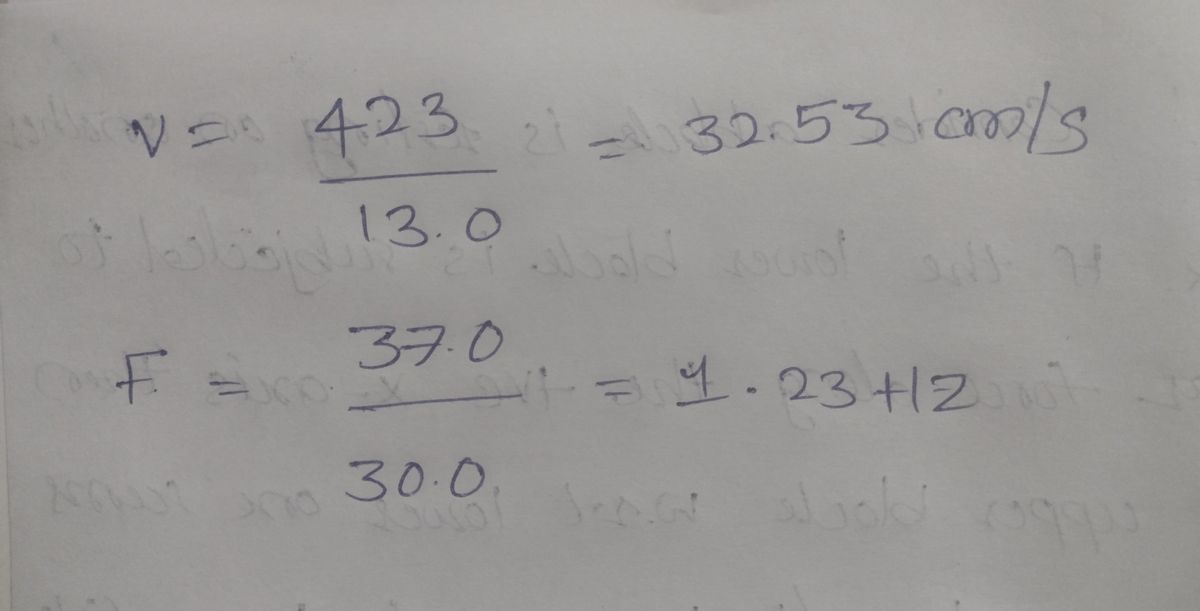 v = 423 / 13.0 = 32.53 cm/s
F = 37.0 / 30.0 = 1.23 Hz